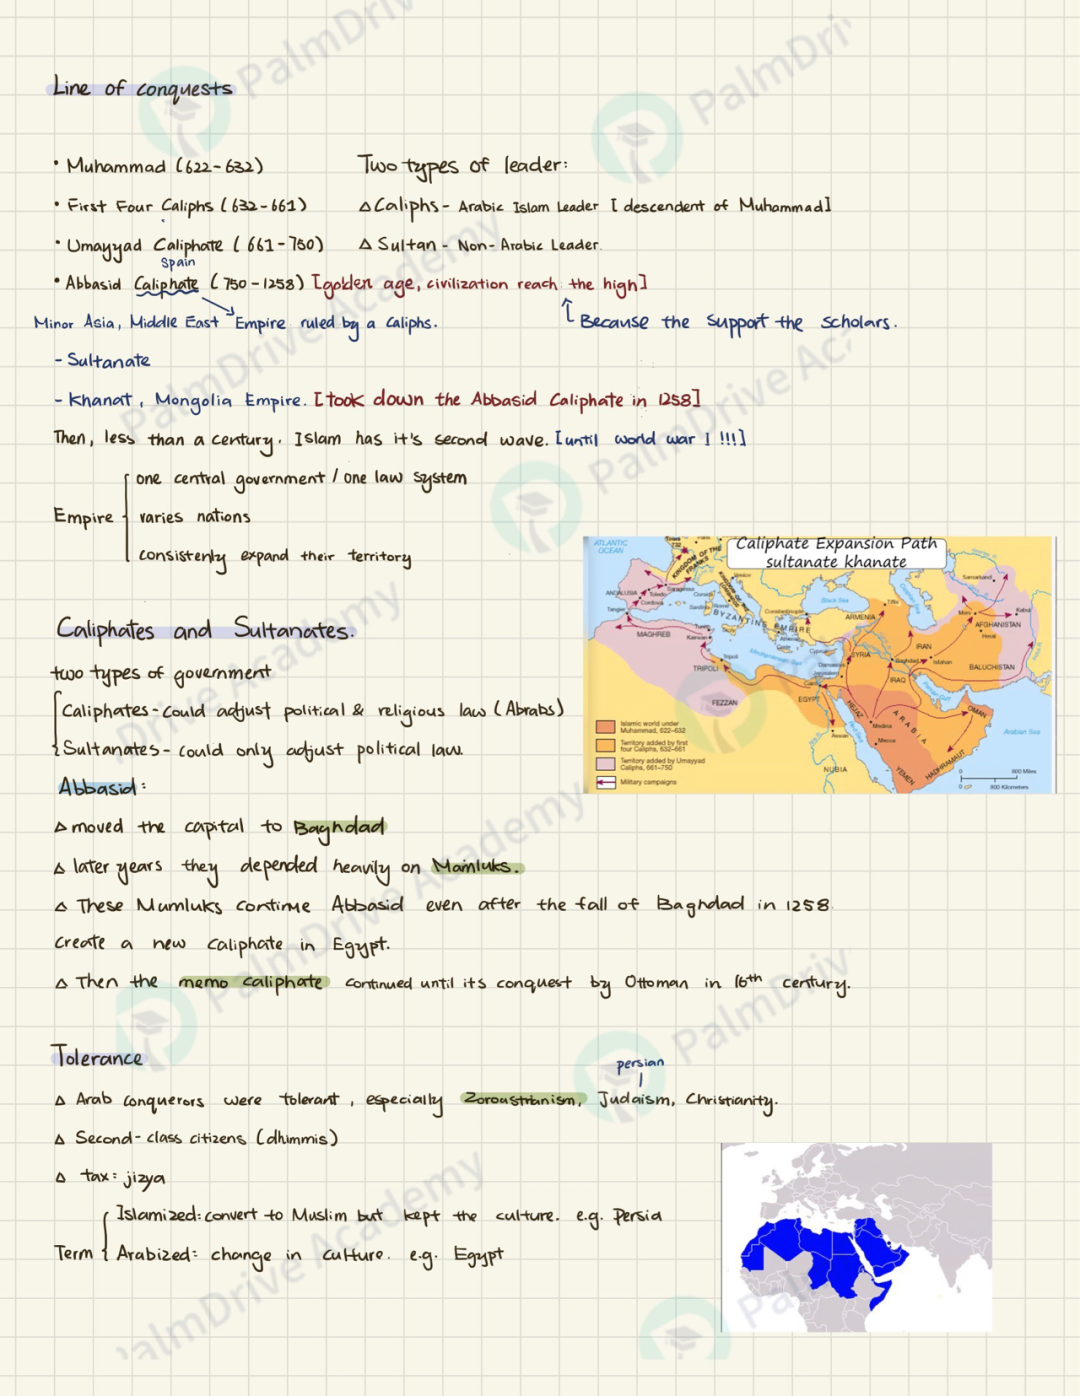 Line of conquests
• Muhammad (622-632)
• First Four Caliphs (632-661)
• Umayyad Caliphate (661-750)
Spain
• Abbasid Caliphate (750-1258) [golden age, civilization reach the high]
Two types of leader:
△ Caliphs - Arabic Islam Leader [descendent of Muhammad]
△ Sultan - Non-Arabic Leader.
Minor Asia, Middle East Empire ruled by a Caliphs.
Because the support the scholars.
- Sultanate
- Khanat, Mongolia Empire. [took down the Abbasid Caliphate in 1258]
Then, less than a century. Islam has it's second wave. [until world war 1 !!!]
Empire
one central government / one law system
varies nations
consistenly expand their territory
Caliphate Expansion Path
sultanate khanate
ATLANTIC
OCEAN
Tours
732
KINGDOM OF THE
FRANKS
Venice
ANDALUSIA
Toledo
Saragossa
Cordova
Corsica
Sardinia
Rome
Tangier
BYZANTINE EMPIRE
Constantinople
Black Sea
Tiflis
ARMENIA
Caspian Sea
Samarkand
Merv
Kabul
AFGHANISTAN
Herat
MAGHREB
Tunis
Kairwan
Athens
Crete
Cyprus
Mediterranean Sea
SYRIA
Damascus
Jerusalem
Baghdad
Isfahan
IRAN
IRAQ
BALUCHISTAN
TRIPOLI
Tripoli
Cairo
EGYPT
FEZZAN
HEJAZ
Persian Gulf
OMAN
ARABIA
Medina
Mecca
Aswan
Red Sea
Arabian Sea
NUBIA
YEMEN
HADHRAMAUT
Islamic world under
Muhammad, 622-632
Territory added by first
four Caliphs, 632-661
Territory added by Umayyad
Caliphs, 661-750
Military campaigns
0 600 Miles
0 800 Kilometers
Caliphates and Sultanates.
two types of government
Caliphates - could adjust political & religious law (Abrabs)
Sultanates - could only adjust political law.
Abbasid:
△ moved the capital to Baghdad
△ later years they depended heavily on Mamluks.
△ These Mumluks continue Abbasid even after the fall of Baghdad in 1258.
Create a new caliphate in Egypt.
△ Then the memo caliphate continued until its conquest by Ottoman in 16th century.
Tolerance
persian
△ Arab conquerors were tolerant, especially Zoroastrianism, Judaism, Christianity.
△ Second-class citizens (dhimmis)
△ tax: jizya
Term
Islamized: convert to Muslim but kept the culture. e.g. Persia
Arabized: change in culture. e.g. Egypt
PalmDrive Academy